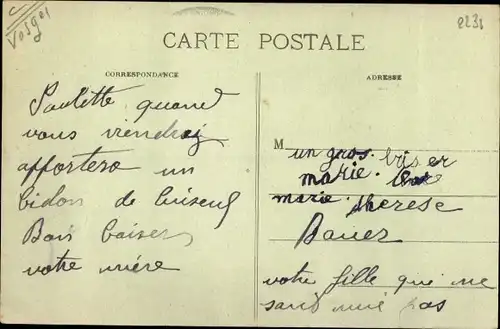 Vosges
2231
CARTE POSTALE
CORRESPONDANCE
ADRESSE
Paulette quand
vous viendrez
apportera un
bidon de
Bon baiser
votre mère
M
un gros. briser
marie.
marie. therese
Bauer
votre fille que ne
sant pas